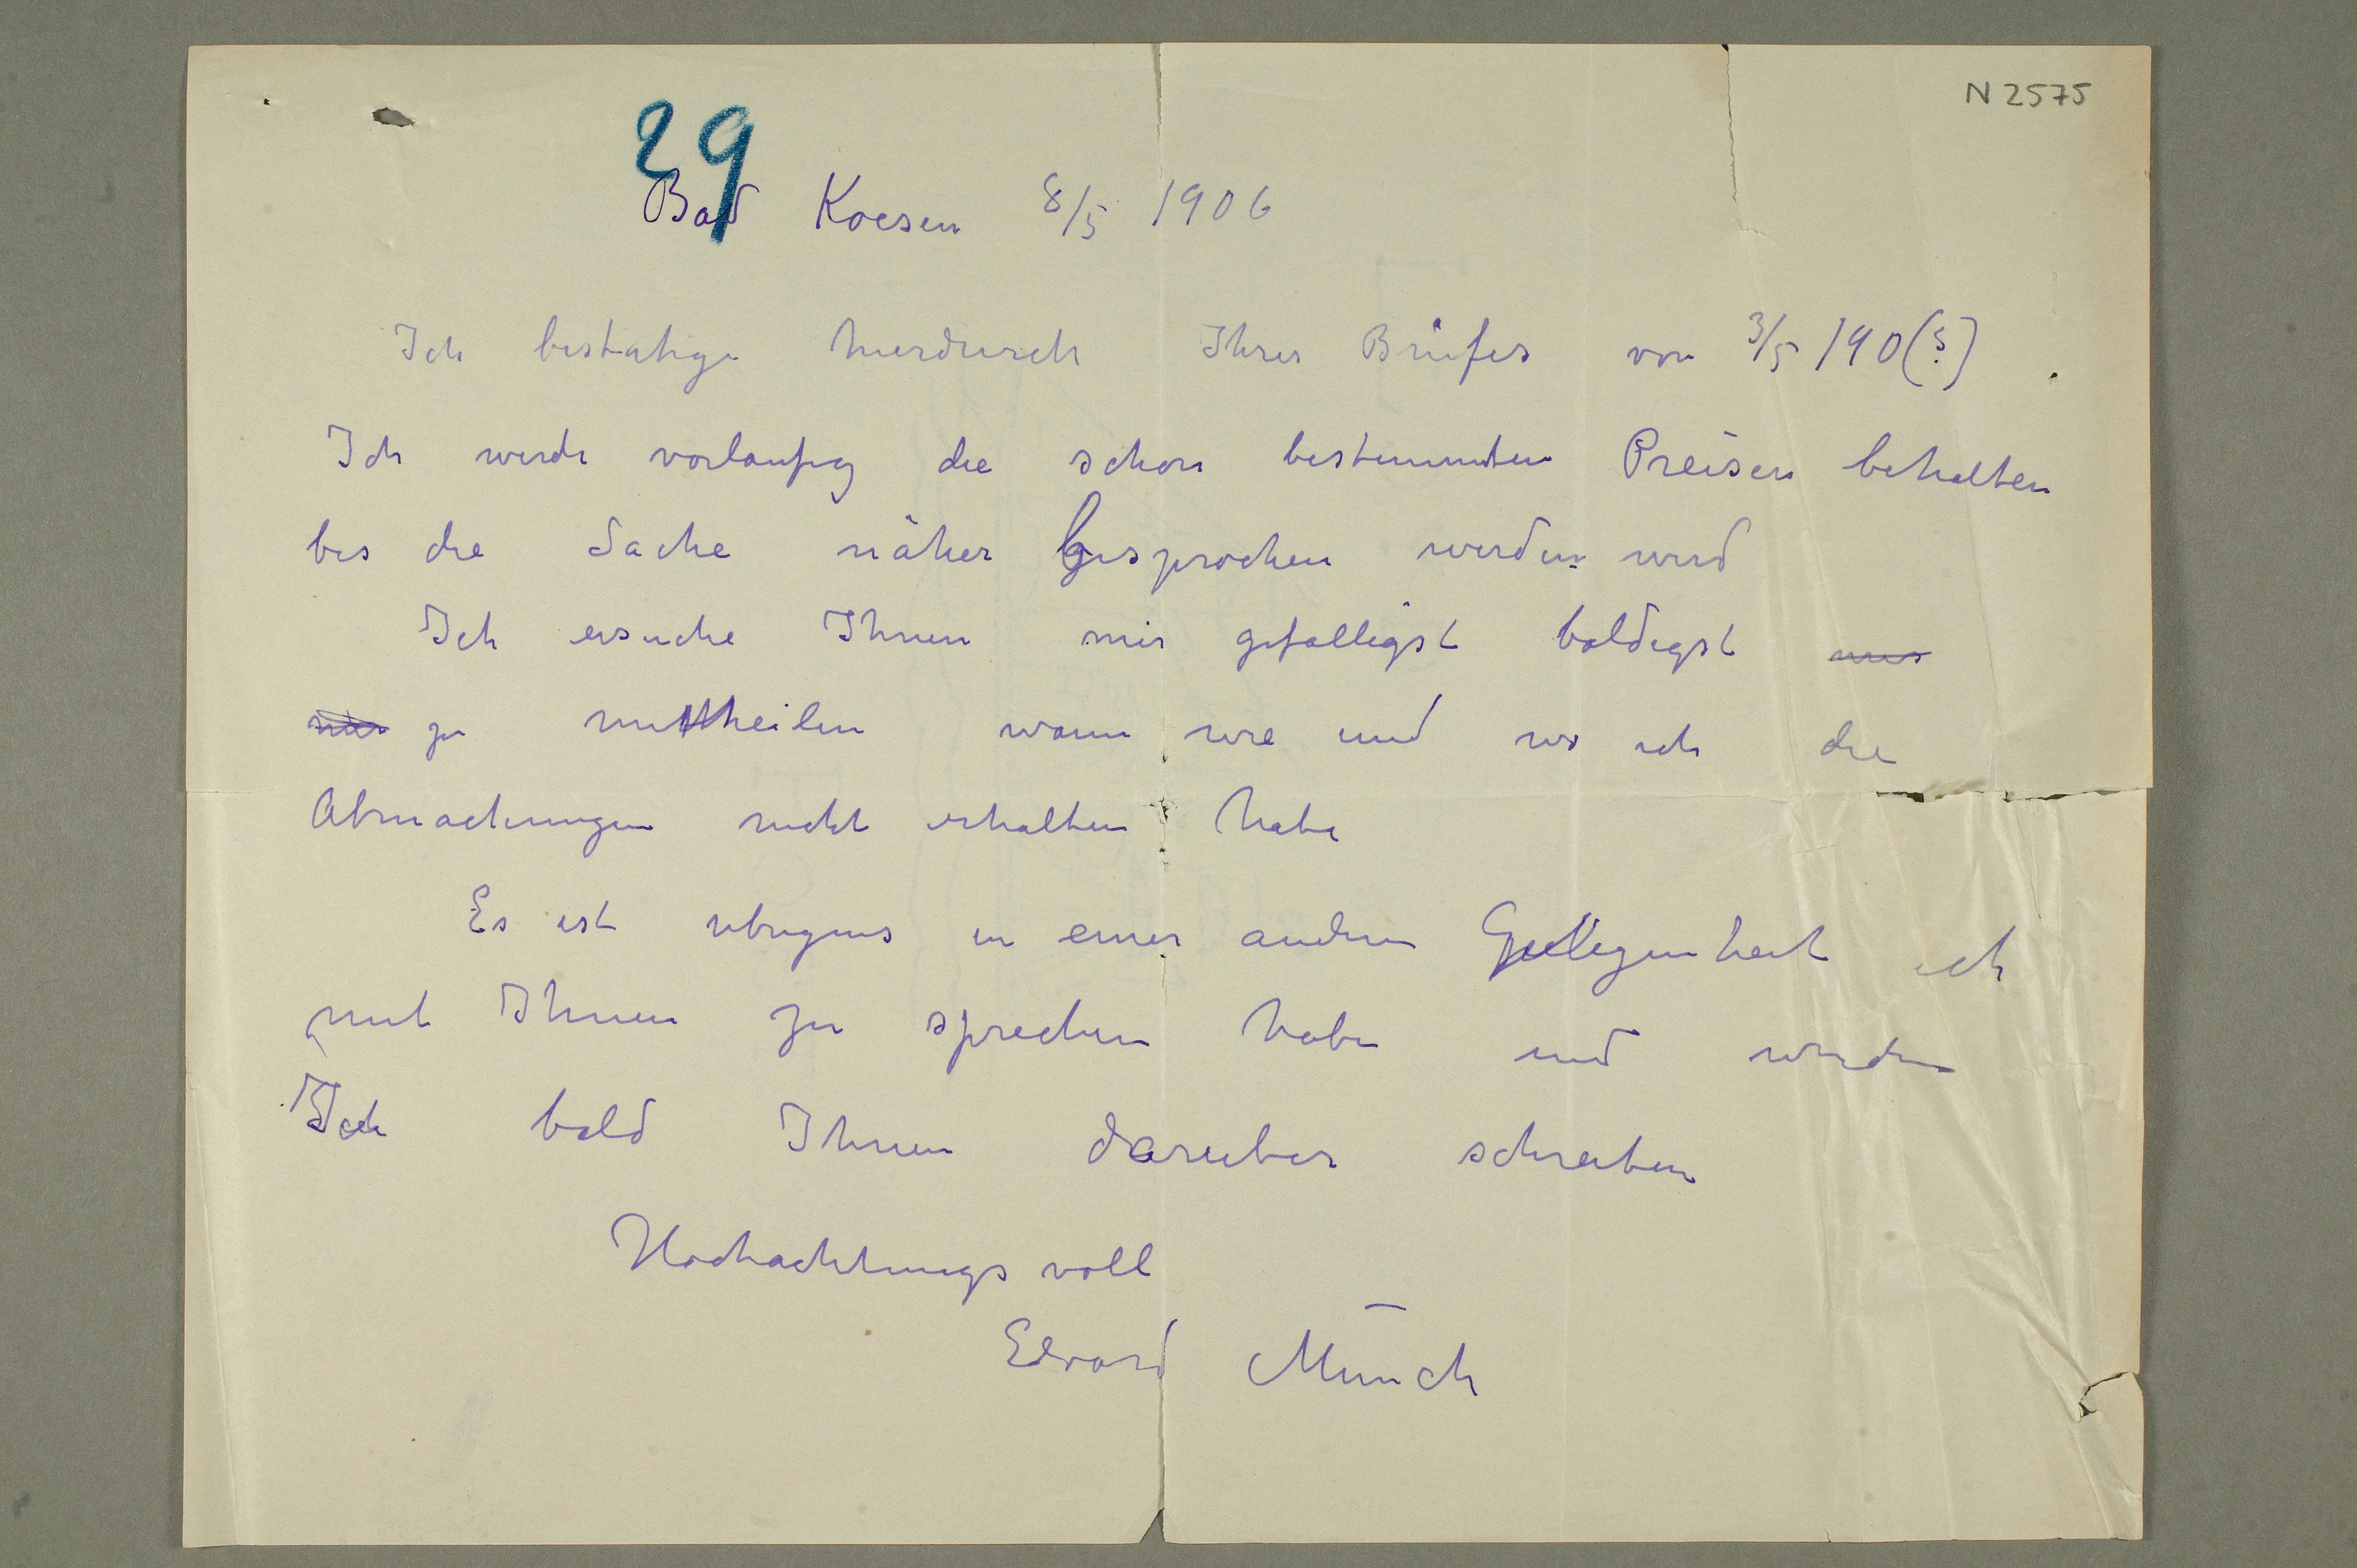 N 2575
29
Bad Koesen 8/5 1906
Ich bestatige hierdurch Ihres Briefes von 3/5 190(?)
Ich werde vorlaufig die schon bestimmten Preisen behalten
bis die Sache näher besprochen werden wird
Ich ersuche Ihnen mir gefalligst baldigst
zu mittheilen wann wie und wo ich die
Abmachungen nicht erhalten habe
Es ist ubrigens in einer andren Gelegenheit ich
mit Ihnen zu sprechen habe und werde
Ich bald Ihnen daruber schreiben
Hochachtungsvoll
Edvard Munch